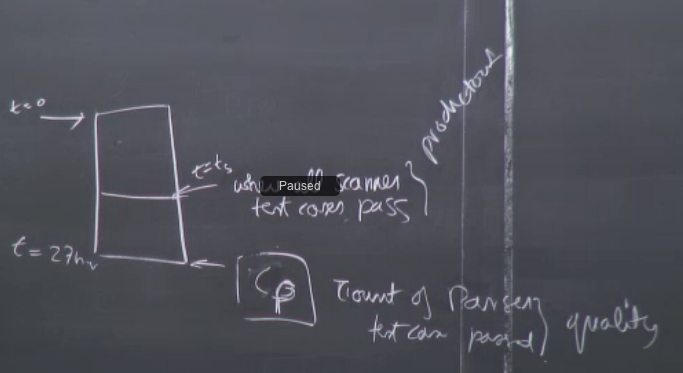 t=0
t=ts
when all scanner
test cases pass
productous
t=27hr
Cp
Count of Parser
test case passed
quality
Paused